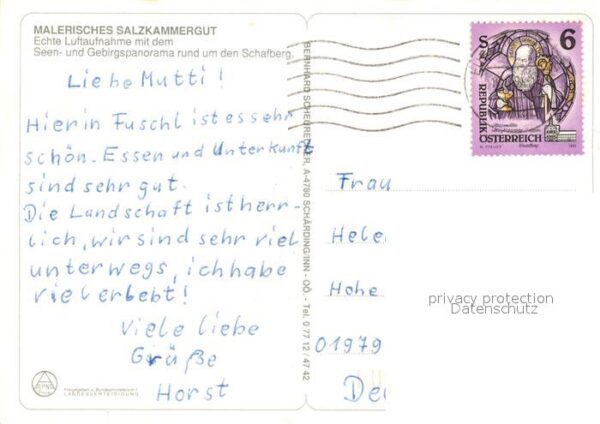 MALERISCHES SALZKAMMERGUT
Echte Luftaufnahme mit dem
Seen- und Gebirgspanorama rund um den Schafberg.
Liebe Mutti!
Hier in Fuschl ist es sehr
schön. Essen und Unterkunft
sind sehr gut.
Die Landschaft ist herr-
lich, wir sind sehr viel
unterwegs, ich habe
viel erlebt!
Viele liebe
Grüße
Horst
LANDESVERTEIDIGUNG
BERNHARD A-4780 SCHÄRDING/INN - OÖ. - Tel. 0 77 12 / 47 42
S 6
REPUBLIK
ÖSTERREICH
Frau
Hele
Hohe
01979
De
privacy protection
Datenschutz